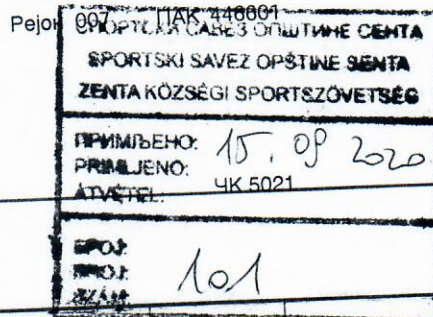 Рејон 007 ПАК 446601
СПОРТСКИ САВЕЗ ОПШТИНЕ СЕНТА
SPORTSKI SAVEZ OPŠTINE SENTA
ZENTA KÖZSÉGI SPORTSZÖVETSÉG
ПРИМЉЕНО: 15. 09 2020
PRIMLJENO:
ÁTVÉTEL: ЧК 5021
БРОЈ:
BROJ: 101
SZÁM: